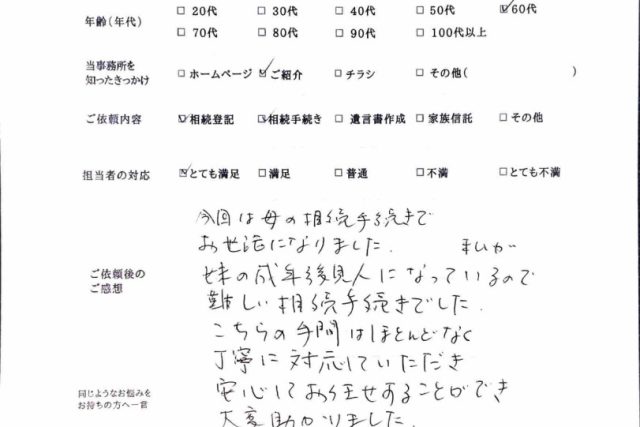 年齢（年代） □ 20代 □ 30代 □ 40代 □ 50代 ☑ 60代
□ 70代 □ 80代 □ 90代 □ 100代以上
当事務所を
知ったきっかけ □ ホームページ ☑ ご紹介 □ チラシ □ その他( )
ご依頼内容 ☑ 相続登記 ☑ 相続手続き □ 遺言書作成 □ 家族信託 □ その他
担当者の対応 ☑ とても満足 □ 満足 □ 普通 □ 不満 □ とても不満
ご依頼後の
ご感想
今回は母の相続手続きで
お世話になりました。 私が
妹の成年後見人になっているので
難しい相続手続きでした。
こちらの手間はほとんどなく
丁寧に対応していただき
安心してお任せすることができ
大変助かりました。
同じようなお悩みを
お持ちの方へ一言